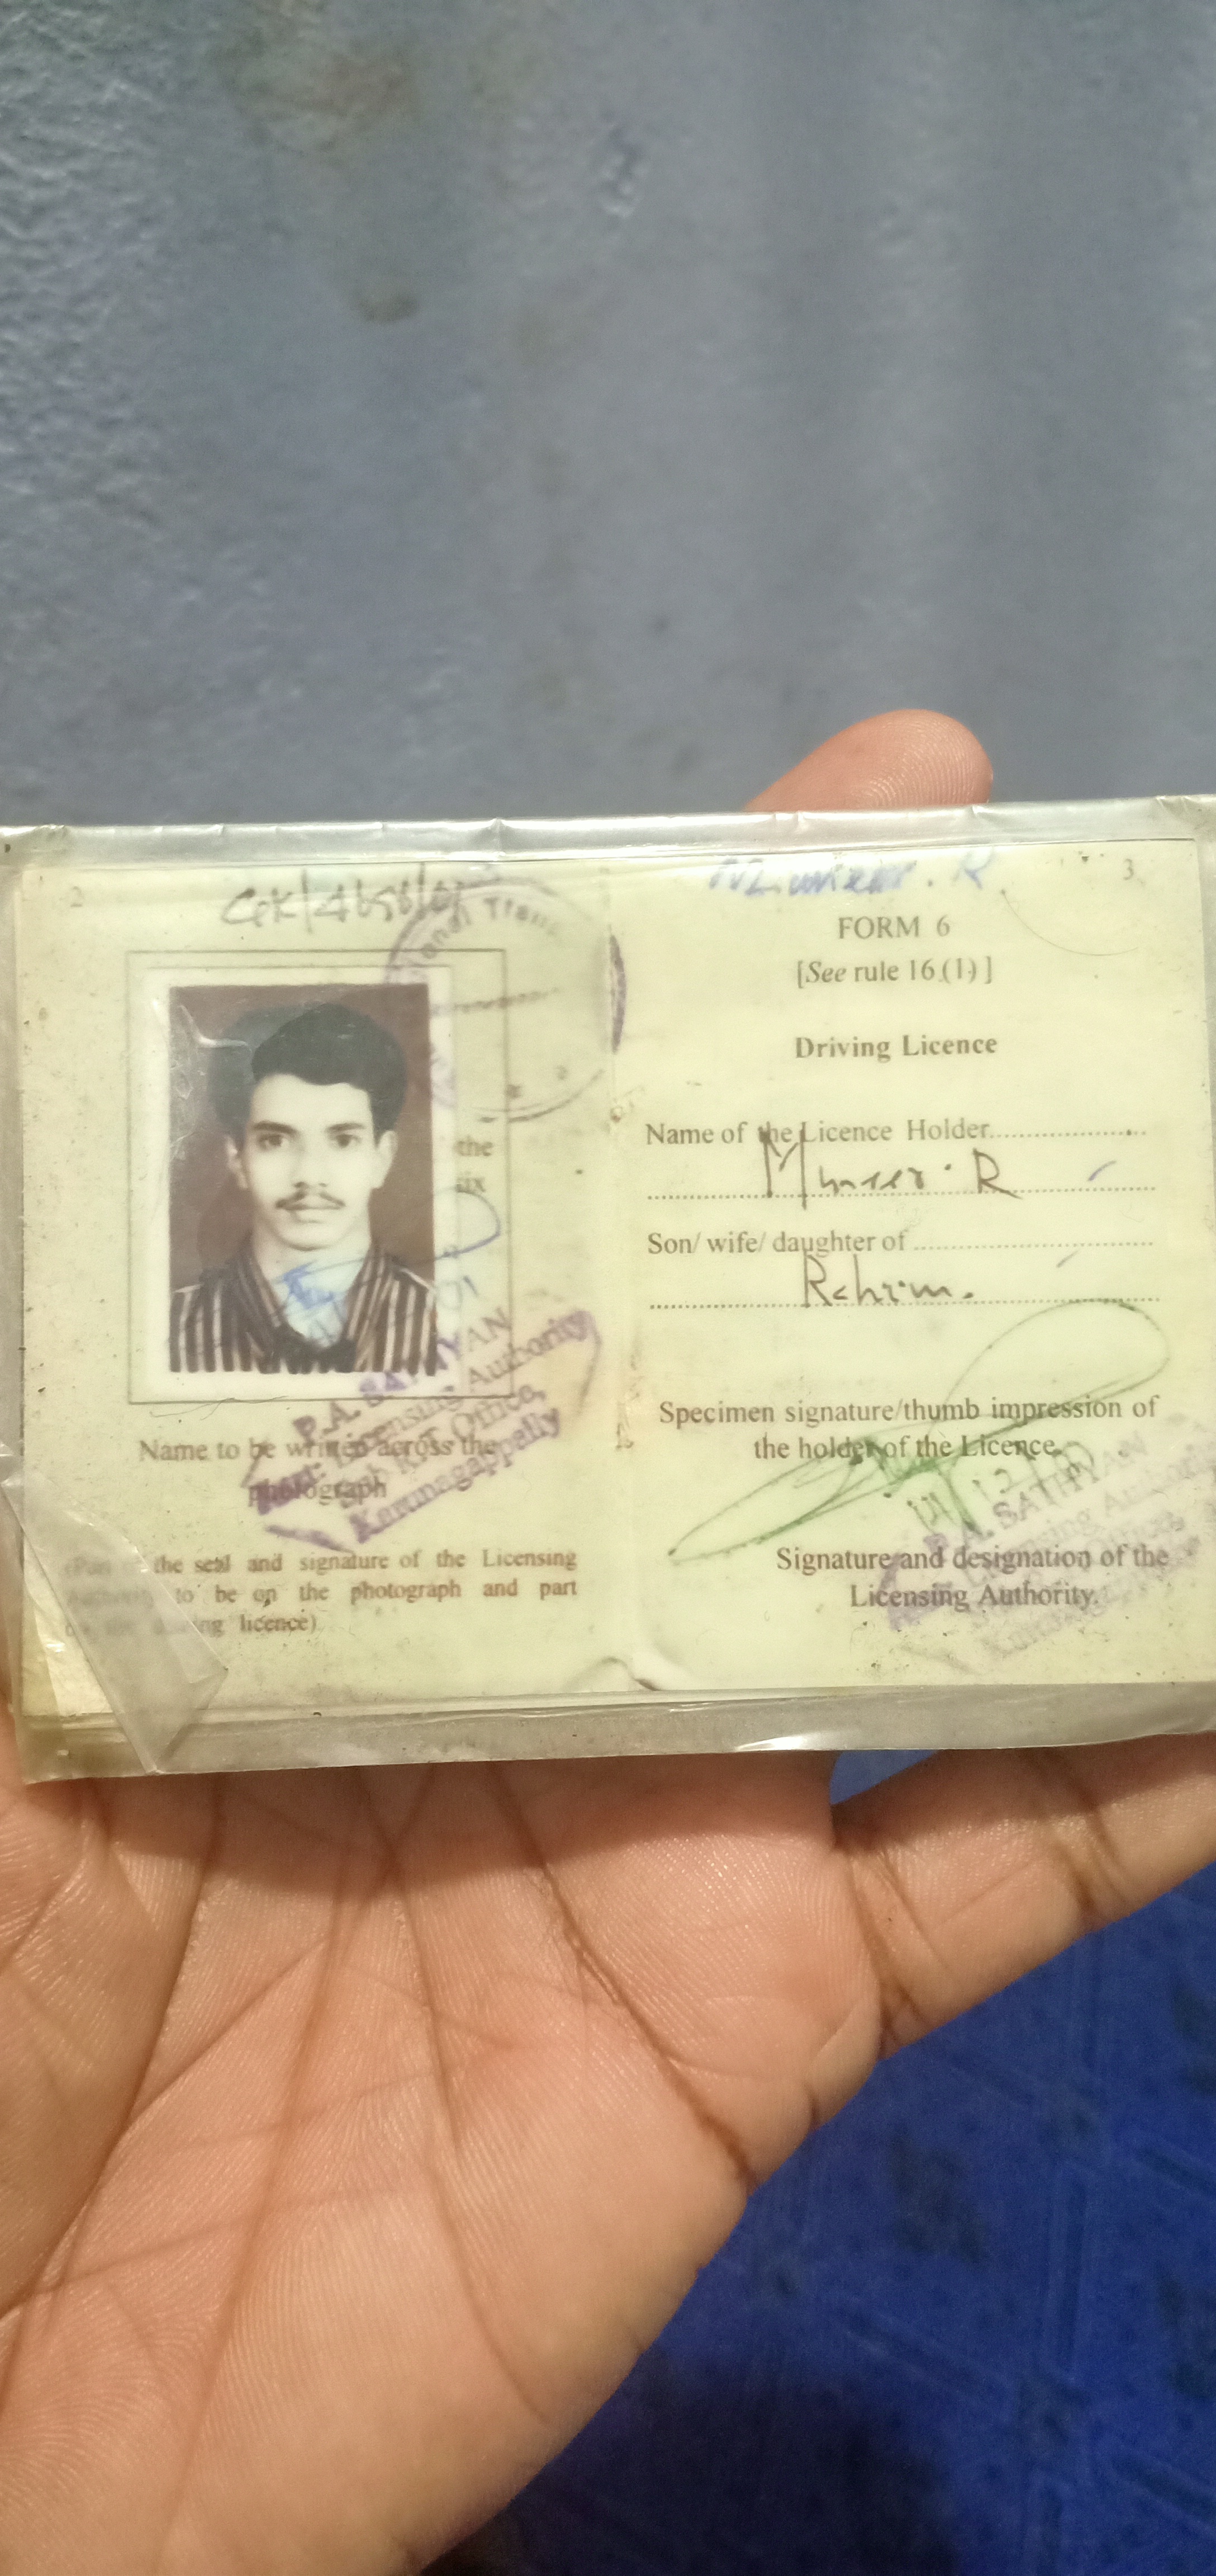 2
the
P.A. SATHYAN
Licensing Authority
Sub R.T. Office,
Karunagappally
Name to be written across the
photograph
the seal and signature of the Licensing
to be on the photograph and part
licence)
3
FORM 6
[See rule 16 (1) ]
Driving Licence
Name of the Licence Holder
Muneer. R
Son/ wife/ daughter of
Rahim.
Specimen signature/thumb impression of
the holder of the Licence.
P.A. SATHYAN
Signature and designation of the
Licensing Authority.